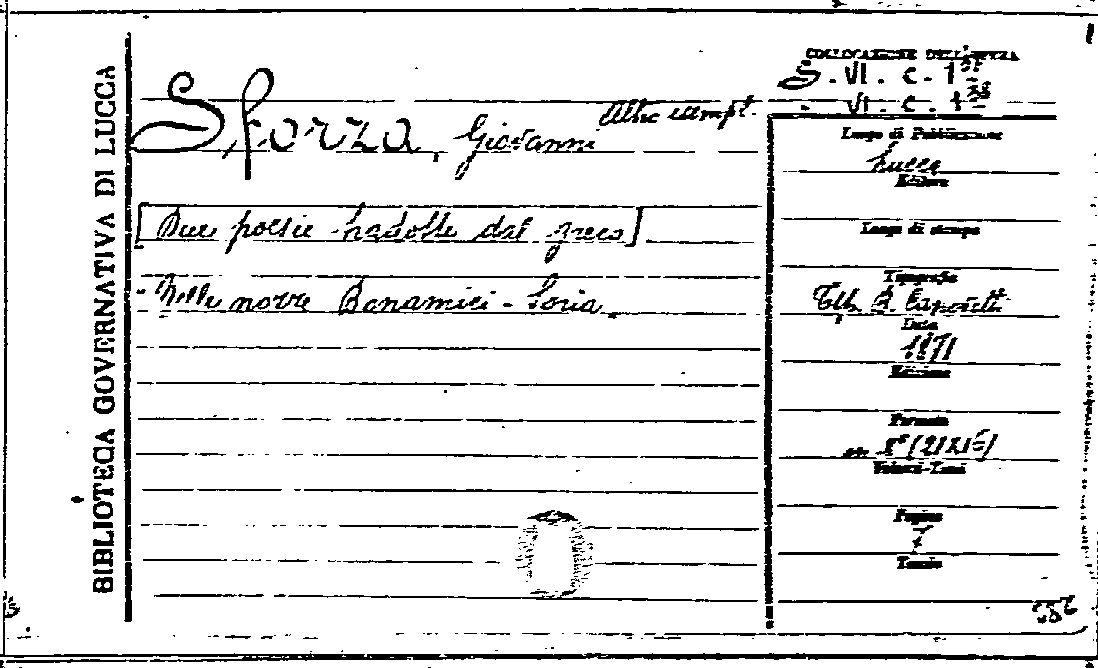 BIBLIOTECA GOVERNATIVA DI LUCCA
COLLOCAZIONE DELL'OPERA
S. VI. C. 1
- VI. C. 1
Altro esempl.
Sforza, Giovanni
[Due poesie tradotte dal greco]
- Nelle nozze Bonamici - Soria.
Luogo di Pubblicazione
Lucca
Editore
Luogo di stampa
Tipografia
Tip. B. Canovetti
Data
1871
Edizione
Formato
in 8° (21x15)
Volumi-Tomi
Pagine
7
Tavole